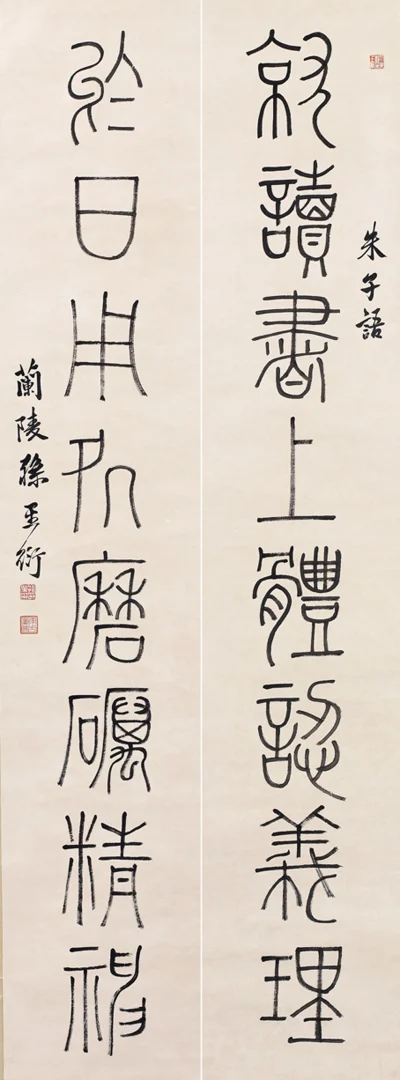 朱子語
就讀書上體認義理
於日用処磨礪精神
蘭陵孫星衍